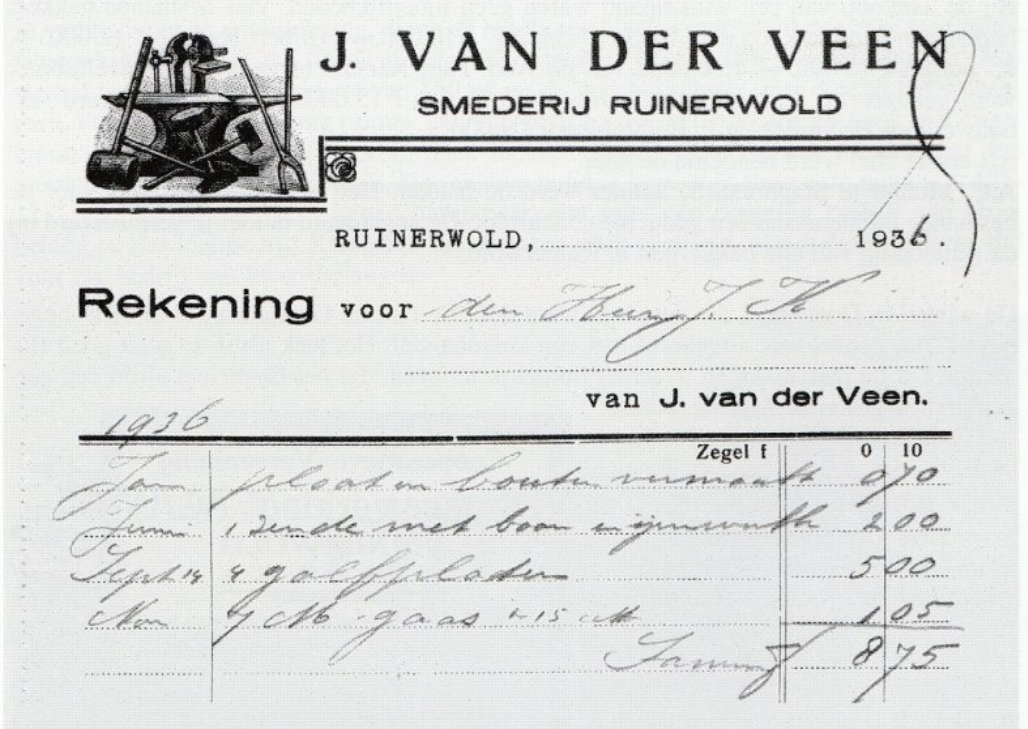 J. VAN DER VEEN
SMEDERIJ RUINERWOLD
RUINERWOLD, 1936.
Rekening voor den Heer J. K
van J. van der Veen.
1936
Zegel f 0 10
Jan plaat en bouten vermaakt 0 70
Juni 1 zende met boom 2 00
Sept 14 4 golfplaten 5 00
Nov 7 M gaas 15 1 05
Samen f 8 75